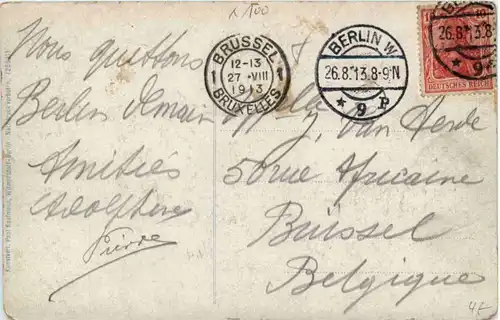 1/100
Nous quittons
Berlin demain
Amitiés
Adolphine
Pierre
BRUSSEL
1 1
12-13
27 · VIII
1913
BRUXELLES
BERLIN W.
26.8.13.8-9N
* 9 P
10
26.8.13.8
DEUTSCHES REICH
J. Van
50 rue Africaine
Brüssel
Belgique